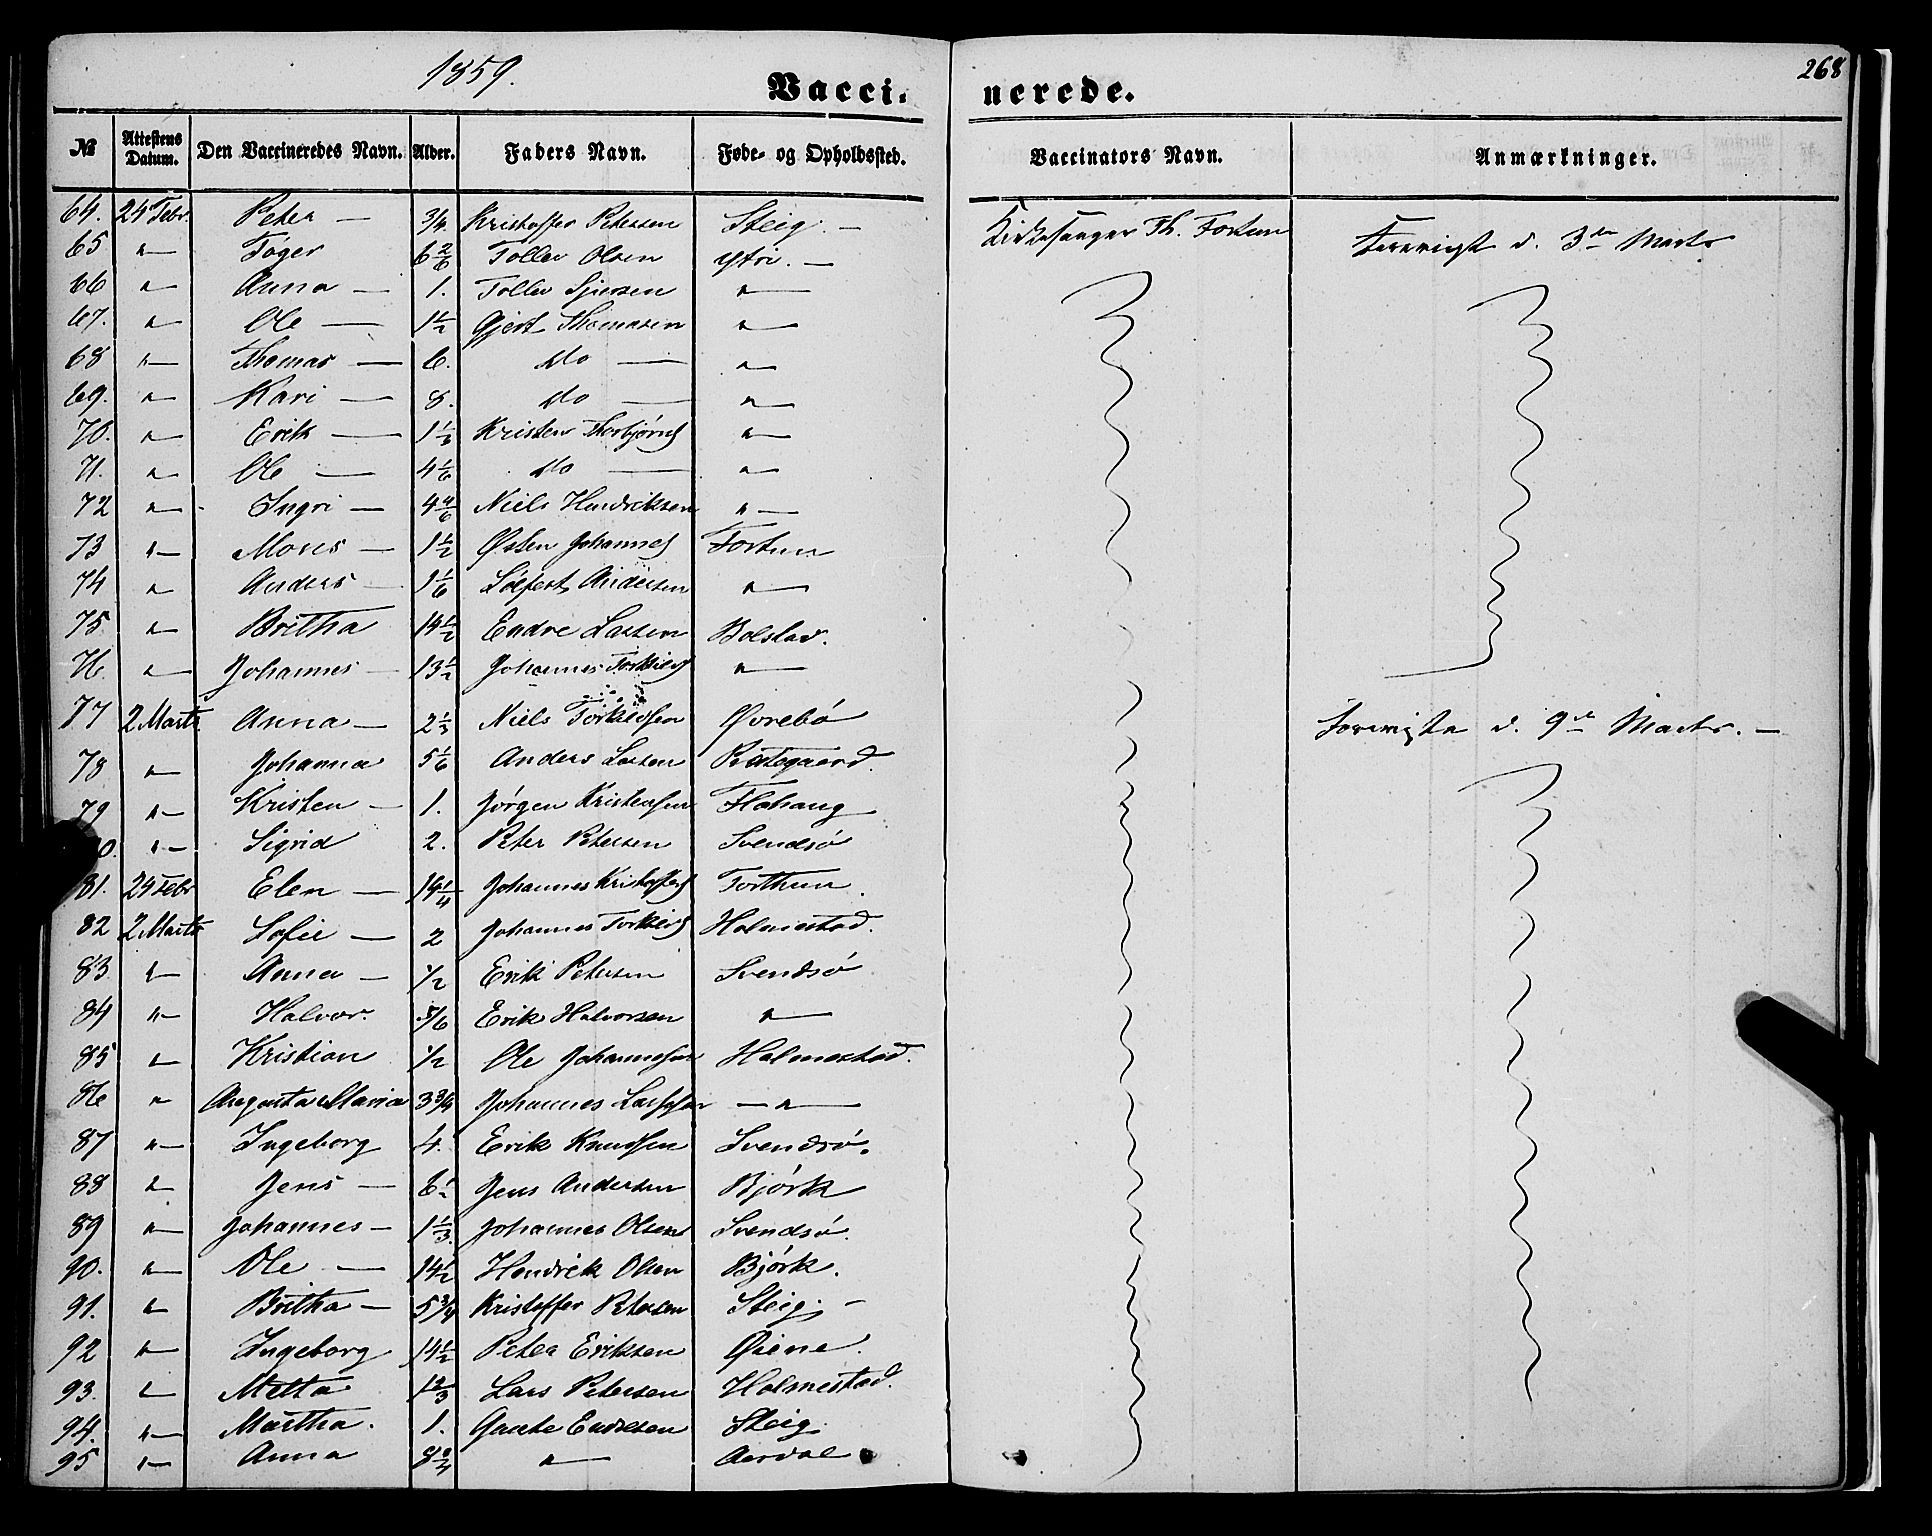 1859.
268
Vacci- nerede.
№ Attestens Datum. Den Vaccineredes Navn. Alder. Faders Navn. Føde- og Opholdssted. Vaccinators Navn. Anmærkninger.
64. 24 Febr. Peter — 3/4 Kristoffer Petersen Steig. — Kirkesanger Th. Fortun d. 3de Marts
65 "— Tøger 6 2/6 Tollev Olsen Ytri. —
66 "— Anna — 1. Tollev "—
67. "— Ole — 1 1/2 Gjert Thomasen "—
68 "— Thomas — 6. do — "—
69. "— Kari — 8. do — "—
70. "— Erik — 1 1/3 Kristen Thorbjørns "—
71. "— Ole — 4 1/6 do — "—
72 "— Ingri — 4 4/6 Niels Hendriksen "—
73 "— Mons — 1 1/2 Østen Johannes Fortun
74 "— Anders — 1 1/6 Andersen "—
75. "— Britha 14 1/2 Endre Lassen Bolstad.
76. "— Johannes — 13 1/2 Johannes "—
77 2 Marts. Anna — 2 1/3 Niels Torkildsen Øvrebö d. 9de Marts. —
78 "— Johanna 5 1/6 Anders Lassen
79 "— Kristen — 1. Jørgen Kristensen Flahaug
"— Sigrid 2. Peter Petersen Svendsö
81. 24 Febr Elen — 14 1/4 Johannes Kristoffers Forthun.
82 2 Marts Sofie — 2 Johannes Holmestad.
83 "— Anna — 1/2 Erik Petersen Svendsö
84 "— Halvor. 5/6 Erik Halvorsen "—
85 "— Kristian 1/2 Ole Johannesen Holmestad.
86 " Augusta Maria 3 3/4 Johannes Lassesen —"—
87 "— Ingeborg 4. Erik Knudsen Svendsö.
88 "— Jens — 6 1/2 Jens Andersen Björk
89 "— Johannes — 1 1/3. Johannes Olsen Svendsö.
90. "— Ole — 14 1/2 Hendrik Olsen Björk.
91. "— Britha — 5 3/4 Kristoffer Petersen Steig. —
92 "— Ingeborg 14 1/2 Peter Eriksen Øiene.
93. "— Metta 1 2/3 Lars Petersen Holmestad.
94. "— Martha. 1. Gaute Endresen Steig
95 "— Anna 8 "— Aardal